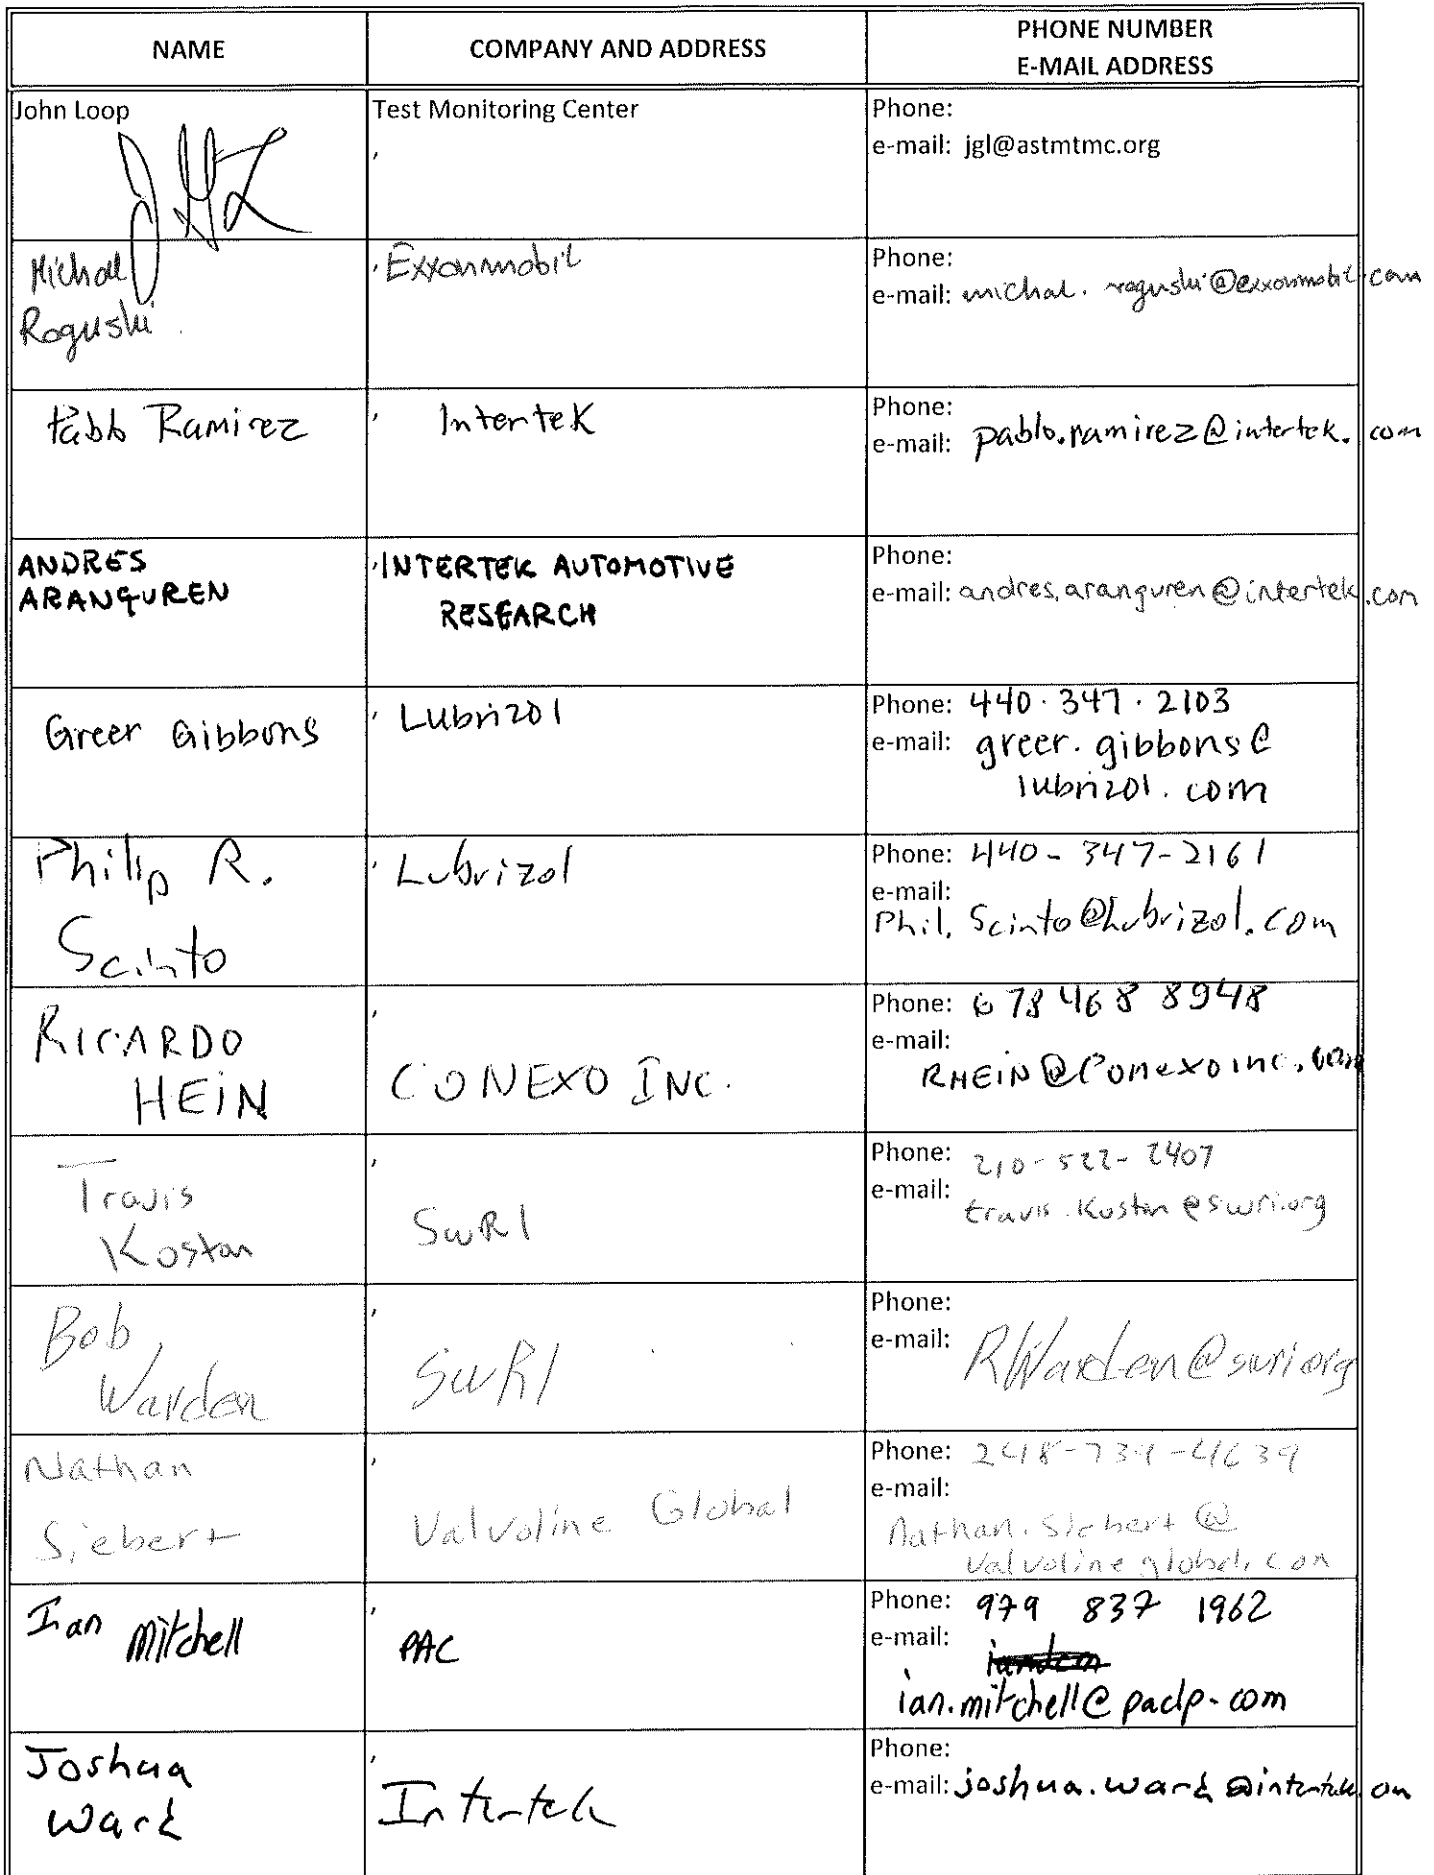 NAME
COMPANY AND ADDRESS
PHONE NUMBER
E-MAIL ADDRESS
John Loop
Test Monitoring Center
,
Phone:
e-mail: jgl@astmtmc.org
Michal
Roguski
, Exxonmobil
Phone:
e-mail: michal.roguski@exxonmobil.com
Pablo Ramirez
, Intertek
Phone:
e-mail: pablo.ramirez@intertek.com
ANDRES
ARANGUREN
, INTERTEK AUTOMOTIVE
RESEARCH
Phone:
e-mail: andres.aranguren@intertek.com
Greer Gibbons
, Lubrizol
Phone: 440.347.2103
e-mail: greer.gibbons@
lubrizol.com
Philip R.
Scinto
, Lubrizol
Phone: 440-347-2161
e-mail:
Phil.Scinto@Lubrizol.com
RICARDO
HEIN
,
CONEXO INC.
Phone: 678 468 8948
e-mail:
RHEIN@Conexoinc.com
Travis
Kostan
,
SwRI
Phone: 210-522-2407
e-mail: travis.kostan@swri.org
Bob
Warden
,
SwRI
Phone:
e-mail: RWarden@swri.org
Nathan
Siebert
,
Valvoline Global
Phone: 248-739-4639
e-mail:
Nathan.Siebert@
valvolineglobal.com
Ian Mitchell
,
PAC
Phone: 979 837 1962
e-mail:
ian.mitchell@paclp.com
Joshua
Ward
,
Intertek
Phone:
e-mail: joshua.ward@intertek.com